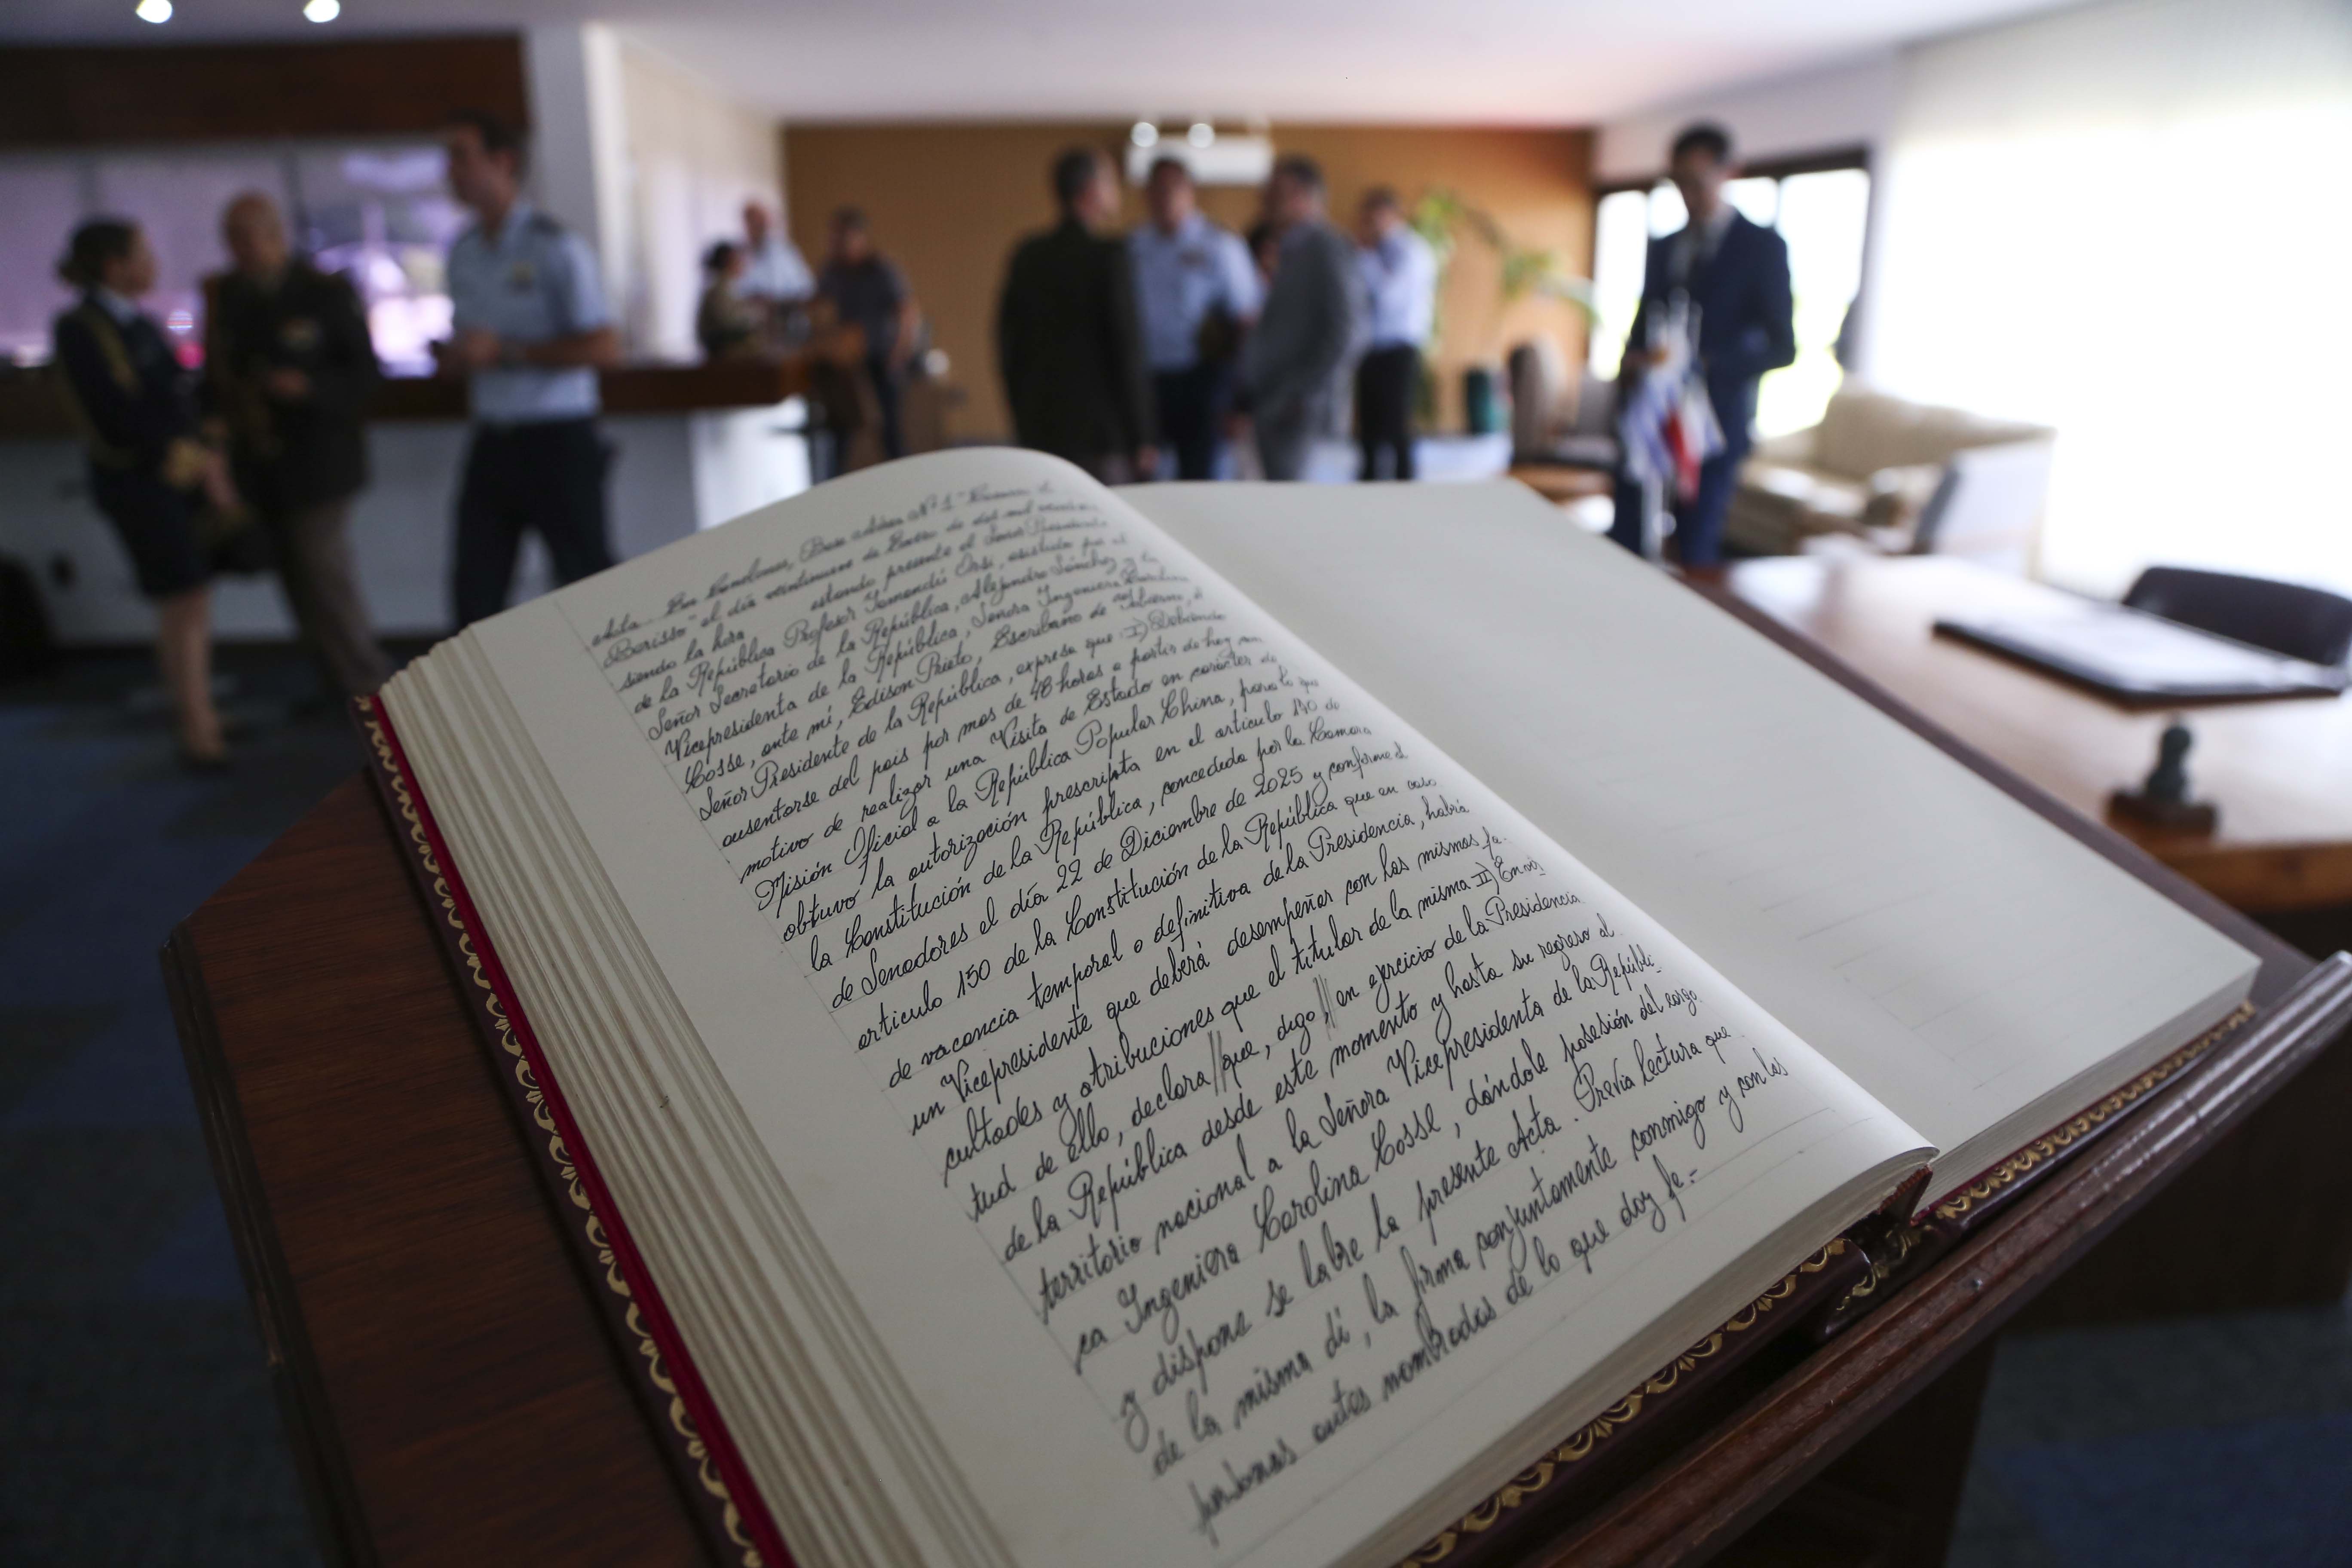 Acta. En Canelones, Base Aérea Nº 1 "Capitán
Berisso" el día veintinueve de Enero de dos mil
siendo la hora estando presente el Señor Presidente
de la República Profesor Yamandú Orsi, asistido por el
Señor Secretario de la República, Alejandro Sánchez y la
Vicepresidenta de la República, Señora Ingeniera Carolina
Cosse, ante mí, Edison Prieto, Escribano de Gobierno, el
Señor Presidente de la República, expresa que: I) Debiendo
ausentarse del país por mas de 48 horas a partir de hoy con
motivo de realizar una Visita de Estado en carácter de
Misión Oficial a la República Popular China, para lo que
obtuvo la autorización prescripta en el artículo 170 de
la Constitución de la República, concedida por la Camara
de Senadores el día 22 de Diciembre de 2025 y conforme el
artículo 150 de la Constitución de la República que en caso
de vacancia temporal o definitiva de la Presidencia, habrá
un Vicepresidente que deberá desempeñar con las mismas fa-
cultades y atribuciones que el titular de la misma II) En vir
tud de ello, declara // que, digo, // en ejercicio de la Presidencia
de la República desde este momento y hasta su regreso al
territorio nacional a la Señora Vicepresidenta de la Repúbli-
ca Ingeniera Carolina Cosse, dándole posesión del cargo
y dispone se labre la presente Acta. Previa lectura que
de la misma di, la firma conjuntamente conmigo y con las
personas antes nombradas de lo que doy fe.=